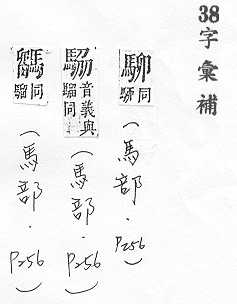 38字彙補
同
(馬部.P256)
音義與
騮同
(馬部.P256)
同騮
(馬部.P256)